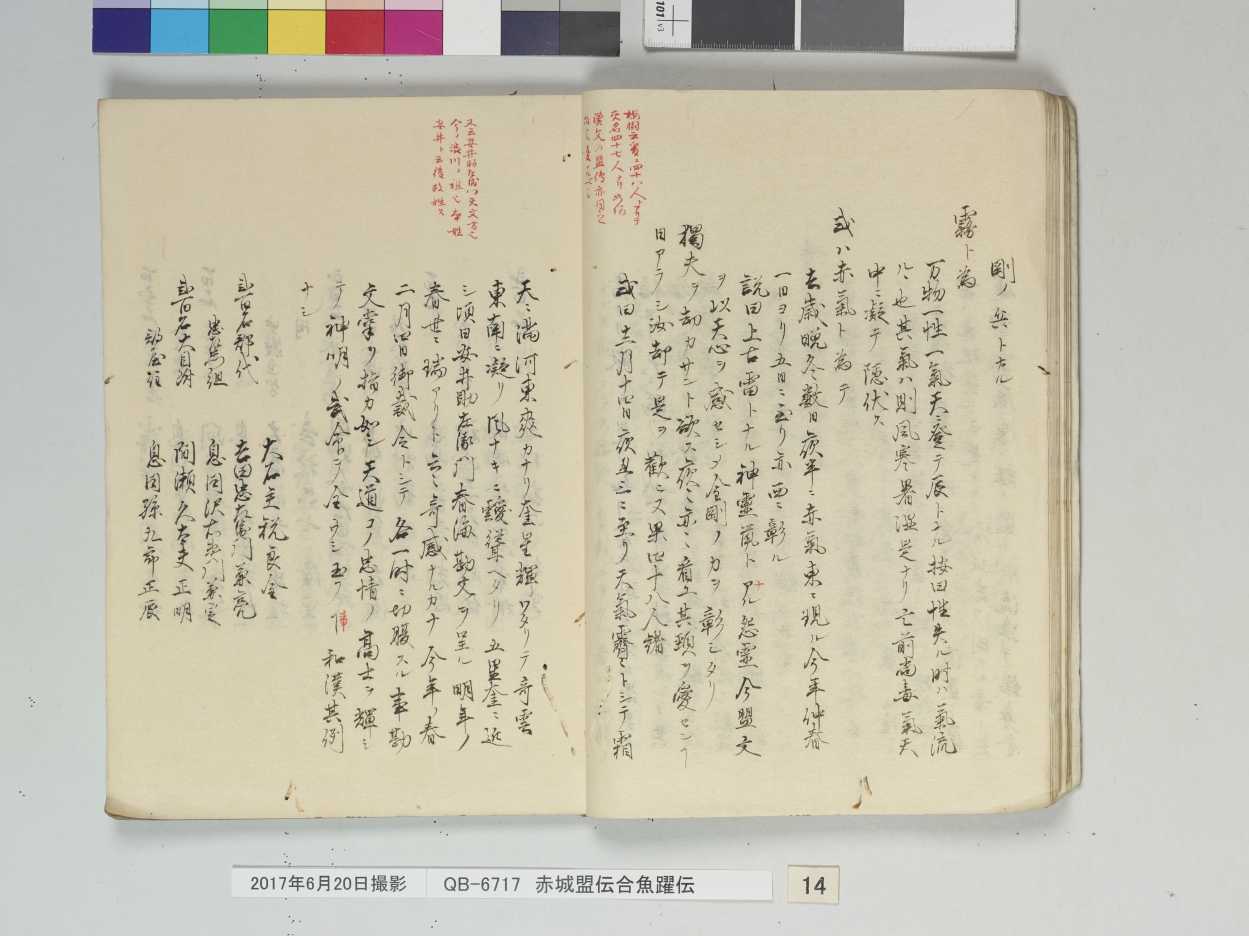 剛ノ兵トナル
霧ト為
万物一性一氣天ニ登テ辰トナル按曰性失ル时ハ氣流
ルヽ也其氣ハ則風寒暑湿是ナリ亡前尚毒氣天
中ニ凝テ隠伏ス
或ハ赤氣ト為テ
去歳晩冬数日夜半ニ赤氣東ニ現ル今年仲春
一日ヨリ五日ニ至リ亦西ニ彰ル
説曰上古雷トナル神霊
ナル怨霊今盟文
ヲ以天心ヲ感セシメ金剛ノ力ヲ彰シタリ
獨夫ヲ劫カサント欲ス
曰アラシ汝却テ是ヲ歡ニ又果四十八人
或曰十二月十四日夜丑三ニ至リ天氣霽ニトシテ霜
桜樹云
四十八人
交名四十七人ナリ如何
漢文ノ盟傳亦同之
天ニ満河東爽カナリ奎星輝ワタリテ奇雲
東南ニ凝リ風ナキニ靉靆ヘタリ五星奎ニ近
シ項日安井助左衛門春海勘文ヲ呈ル明年ノ
春世ニ瑞アリト云ニ奇感ナルカナ今年ノ春
二月四日御裁令トシテ各一时ニ切腹スル事勘
文掌ヲ指カ如シ天道コノ忠情ノ高士ヲ輝シ
テ神明ノ武命ヲ全ラシ玉フ
和漢其例
ナシ
又云安井助左衛門天文方也
今ノ澁川ノ祖也本姓
安井ト云後改姓ス
大石主税良金
三百石郡代
吉田忠左衛門兼亮
忠左衛門組
息同沢右衛門兼定
三百石大目附
間瀬久太夫正明
部屋住
息同孫九郎正辰
2017年6月20日撮影
QB-6717 赤城盟伝合魚躍伝
14